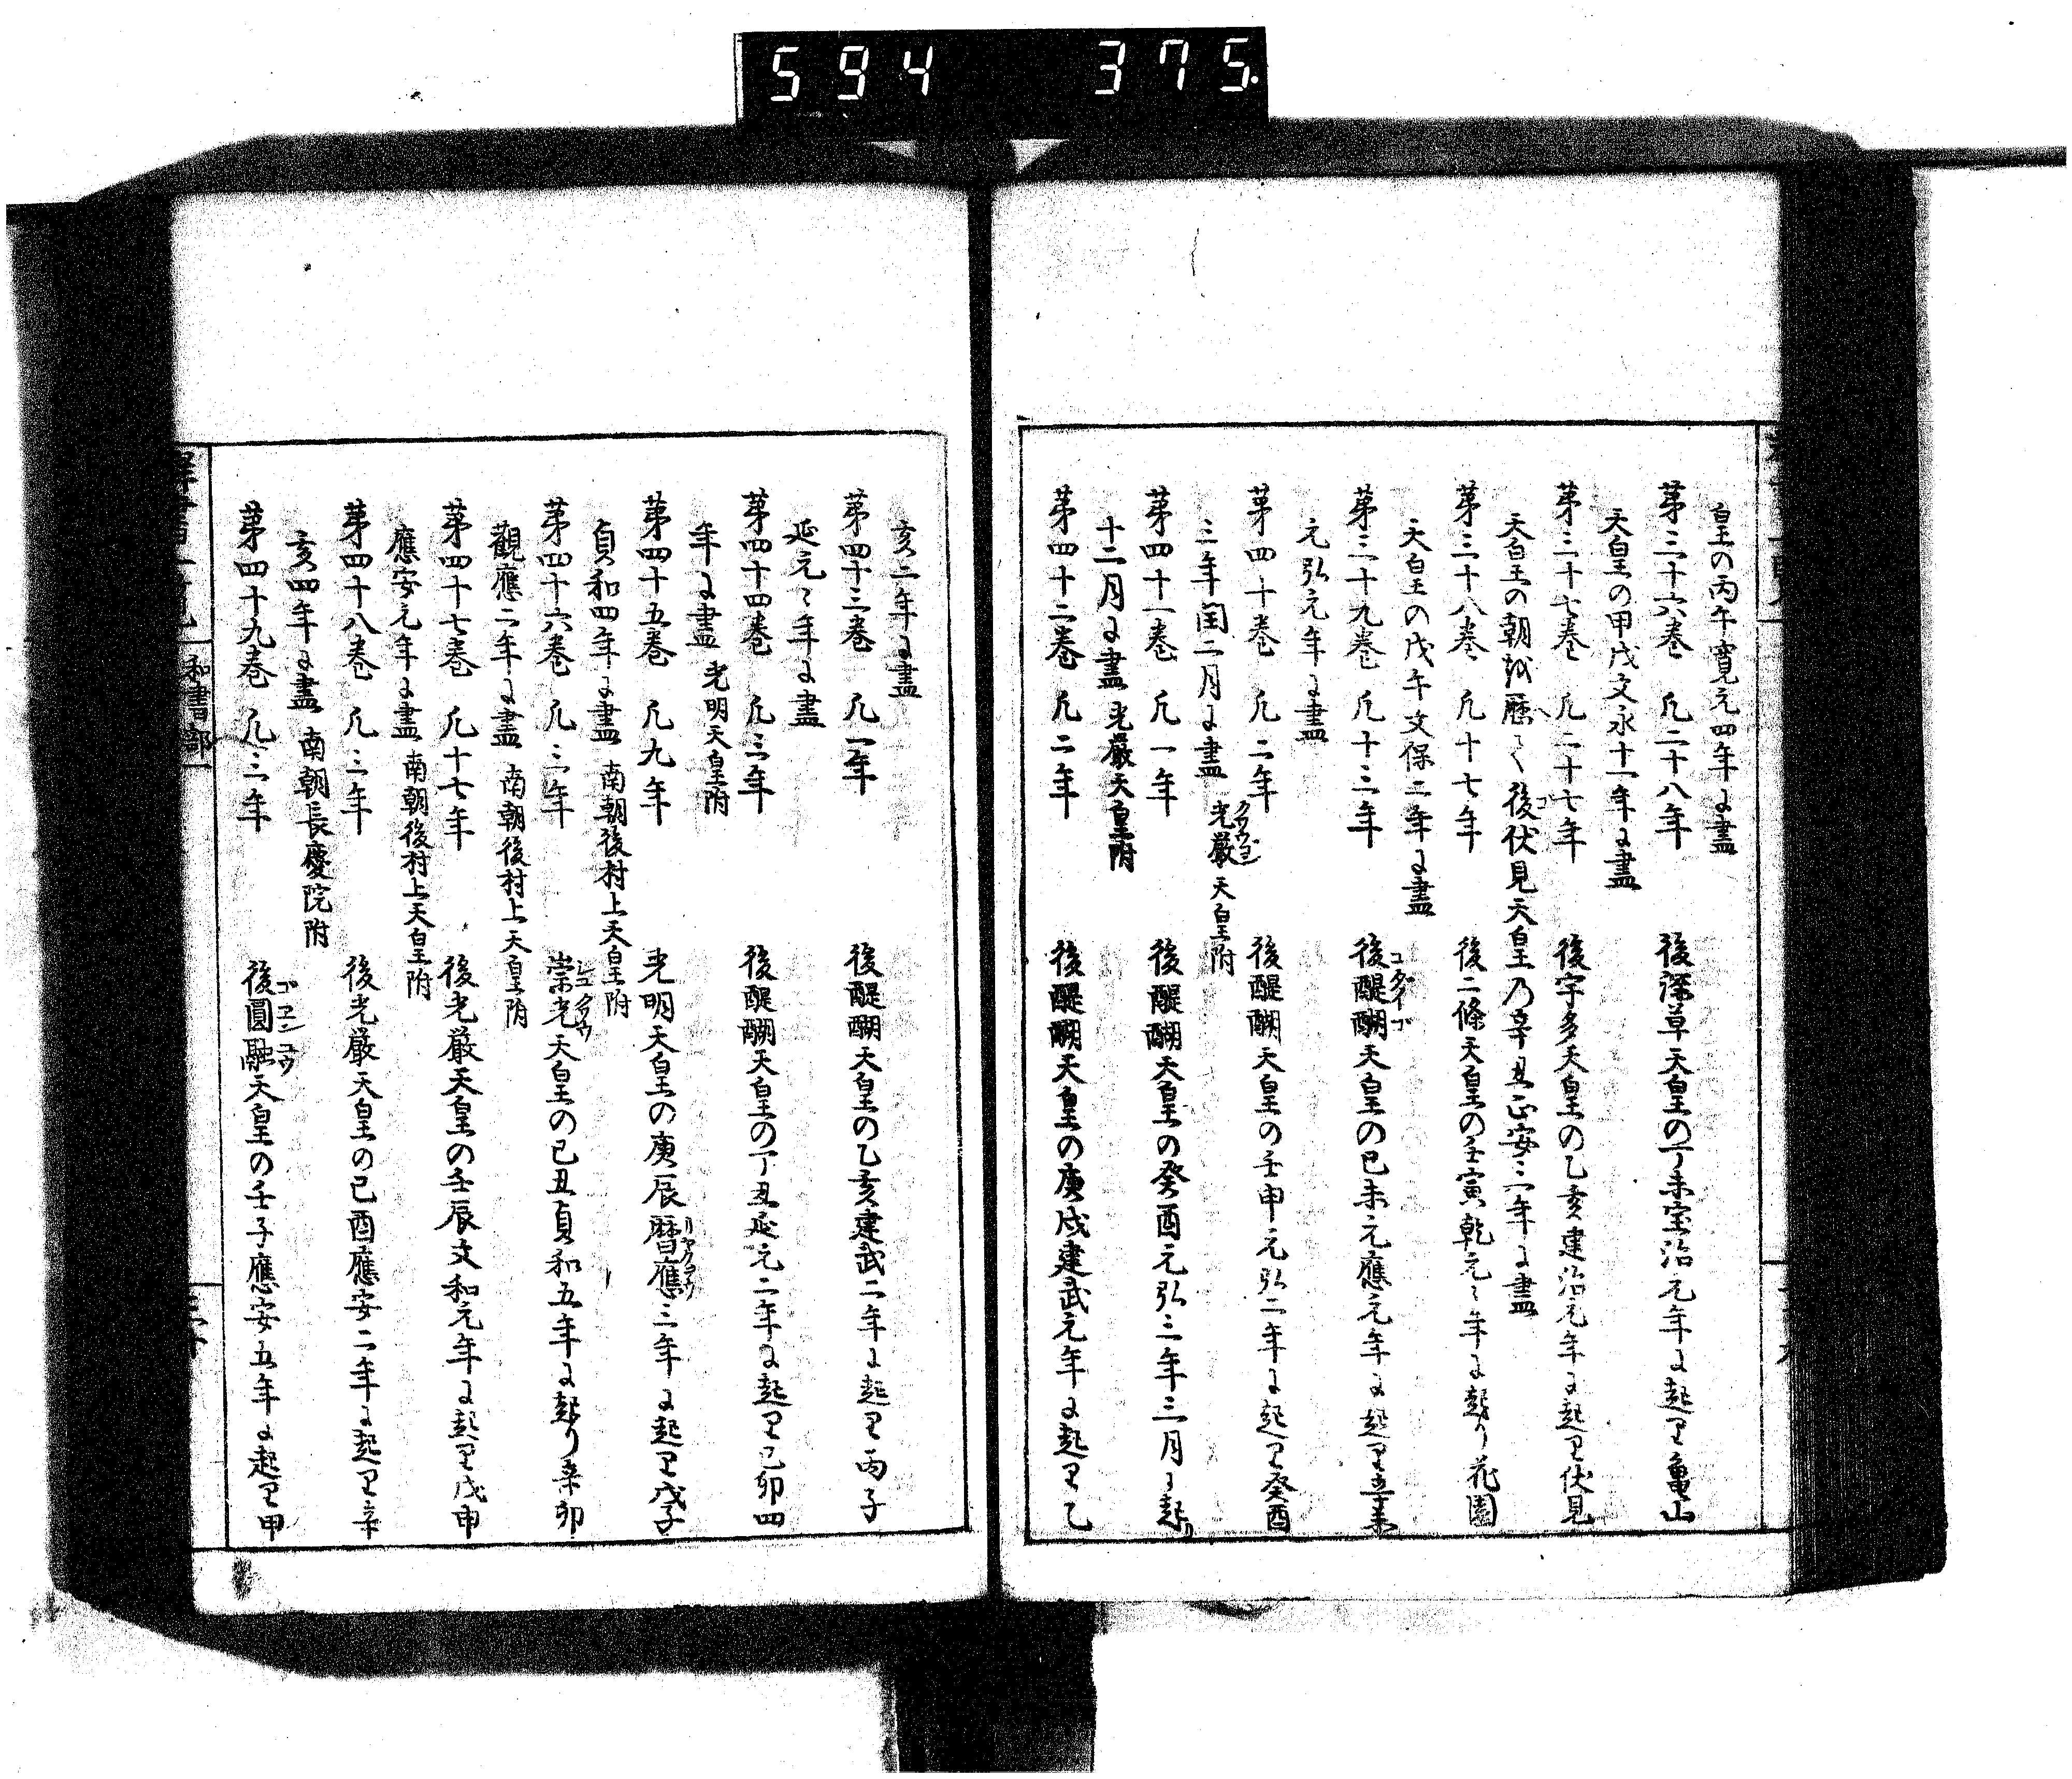 594 375
皇の丙午寛元四年に盡
第三十六巻 凡二十八年 後深草天皇の丁未宝治元年に起り亀山
天皇の甲戌文永十一年に盡
第三十七巻 凡二十七年 後宇多天皇の乙亥建治元年に起り伏見
天皇の朝を歴て後伏見天皇乃辛丑正安三年に盡
第三十八巻 凡十七年 後二條天皇の壬寅乾元々年に起り花園
天皇の戊午文保二年に盡
第三十九巻 凡十三年 後醍醐天皇の己未元應元年に起り辛未
元弘元年に盡
第四十巻 凡二年 後醍醐天皇の壬申元弘二年に起り癸酉
三年閏二月に盡 光嚴天皇附
第四十一巻 凡一年 後醍醐天皇の癸酉元弘三年三月に起り
十二月に盡 光嚴天皇附
第四十二巻 凡二年 後醍醐天皇の庚戌建武元年に起り乙
亥二年に盡
第四十三巻 凡一年 後醍醐天皇の乙亥建武二年に起り丙子
延元々年に盡
第四十四巻 凡三年 後醍醐天皇の丁丑延元二年に起り己卯四
年に盡 光明天皇附
第四十五巻 凡九年 光明天皇の庚辰暦應三年に起り戊子
貞和四年に盡 南朝後村上天皇附
第四十六巻 凡三年 崇光天皇の己丑貞和五年に起り辛卯
觀應二年に盡 南朝後村上天皇附
第四十七巻 凡十七年 後光嚴天皇の壬辰文和元年に起り戊申
應安元年に盡 南朝後村上天皇附
第四十八巻 凡三年 後光嚴天皇の己酉應安二年に起り辛
亥四年に盡 南朝長慶院附
第四十九巻 凡三年 後圓融天皇の壬子應安五年に起り甲
和書部一